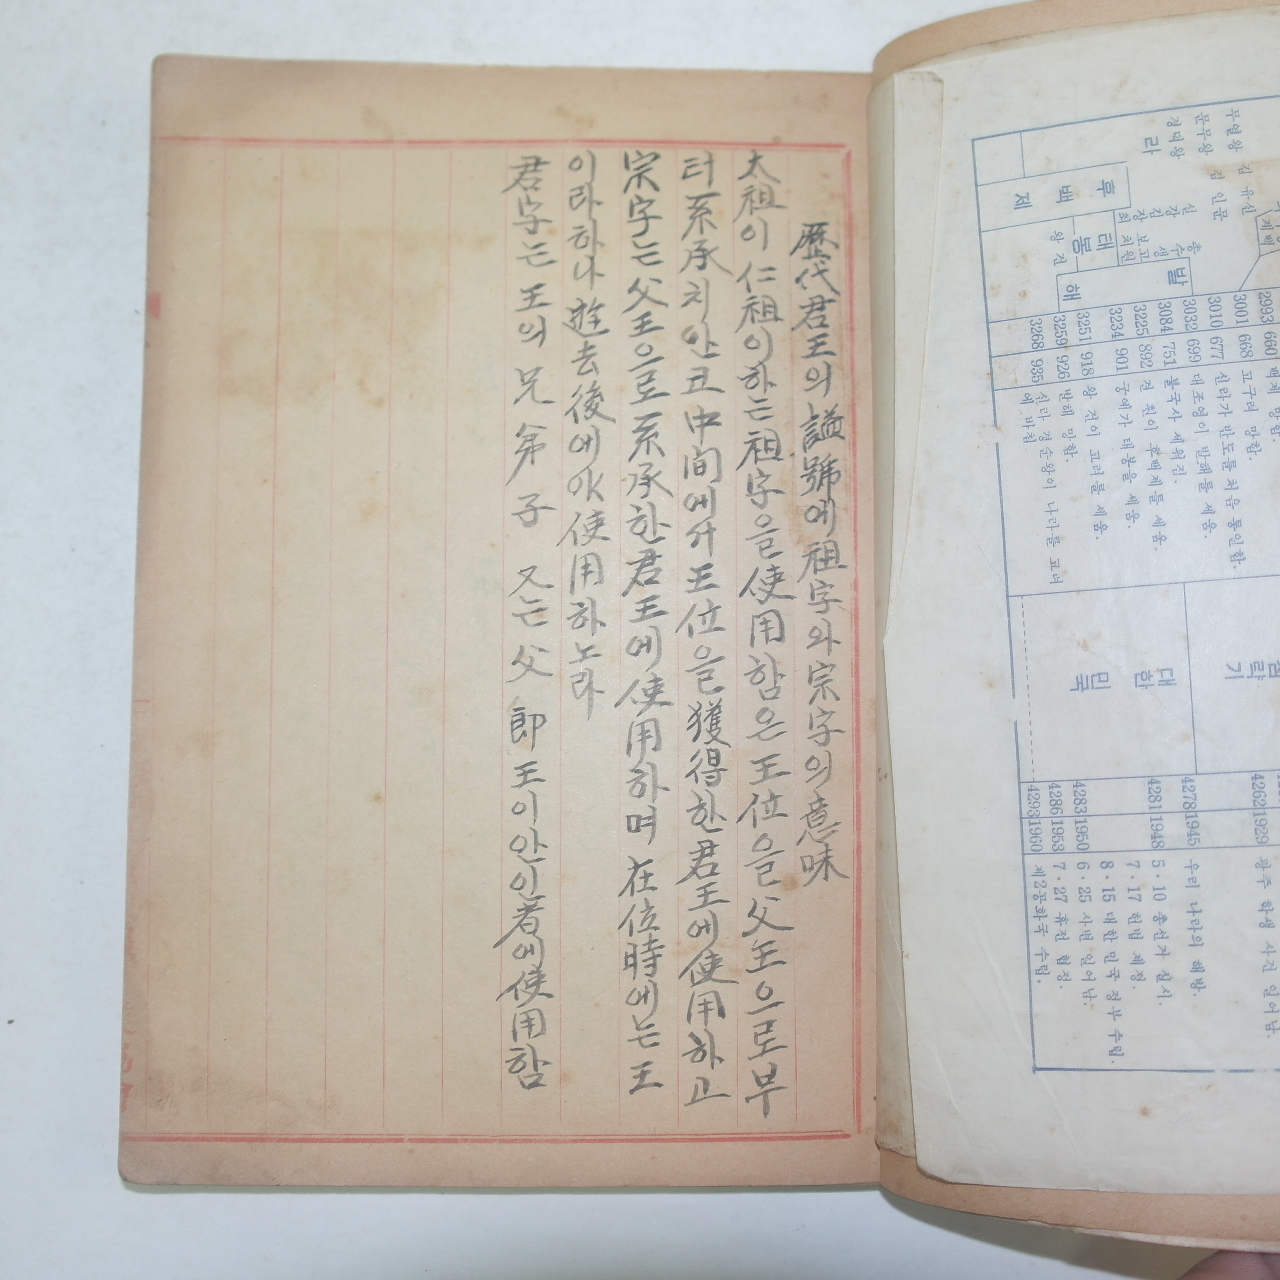 歷代君王의 諡號에 祖字와 宗字의 意味
太祖이 仁祖이하는 祖字을 使用함은 王位을 父王으로부
터 系承치 안코 中間에서 王位을 獲得한 君王에 使用하고
宗字는 父王으로 系承한 君王에 使用하며 在位時에는 王
이라하나 逝去後에야 使用하노라
君字는 王의 兄弟子 又는 父 郎王이안인者에 使用함
무열왕 김유신
문무왕 김인문
경덕왕
라
후백제
태봉
왕건
발해
2993 660 백제 망함.
3001 668 고구려 망함.
3010 677 신라가 반도를 처음 통일함.
3032 699 대조영이 발해를 세움.
3084 751 불국사 세워짐.
3225 892 견훤이 후백제를 세움.
3234 901 궁예가 태봉을 세움.
3251 918 왕건이 고려를 세움.
3259 926 발해 망함.
3268 935 신라 경순왕이 나라를 고려
에 바침.
대한민국
4262 1929 광주 학생 사건 일어남.
4278 1945 우리 나라의 해방.
4281 1948 5·10 총선거 실시.
7·17 헌법 제정.
8·15 대한 민국 정부 수립.
4283 1950 6·25 사변 일어남.
4286 1953 7·27 휴전 협정.
4293 1960 제2공화국 수립.